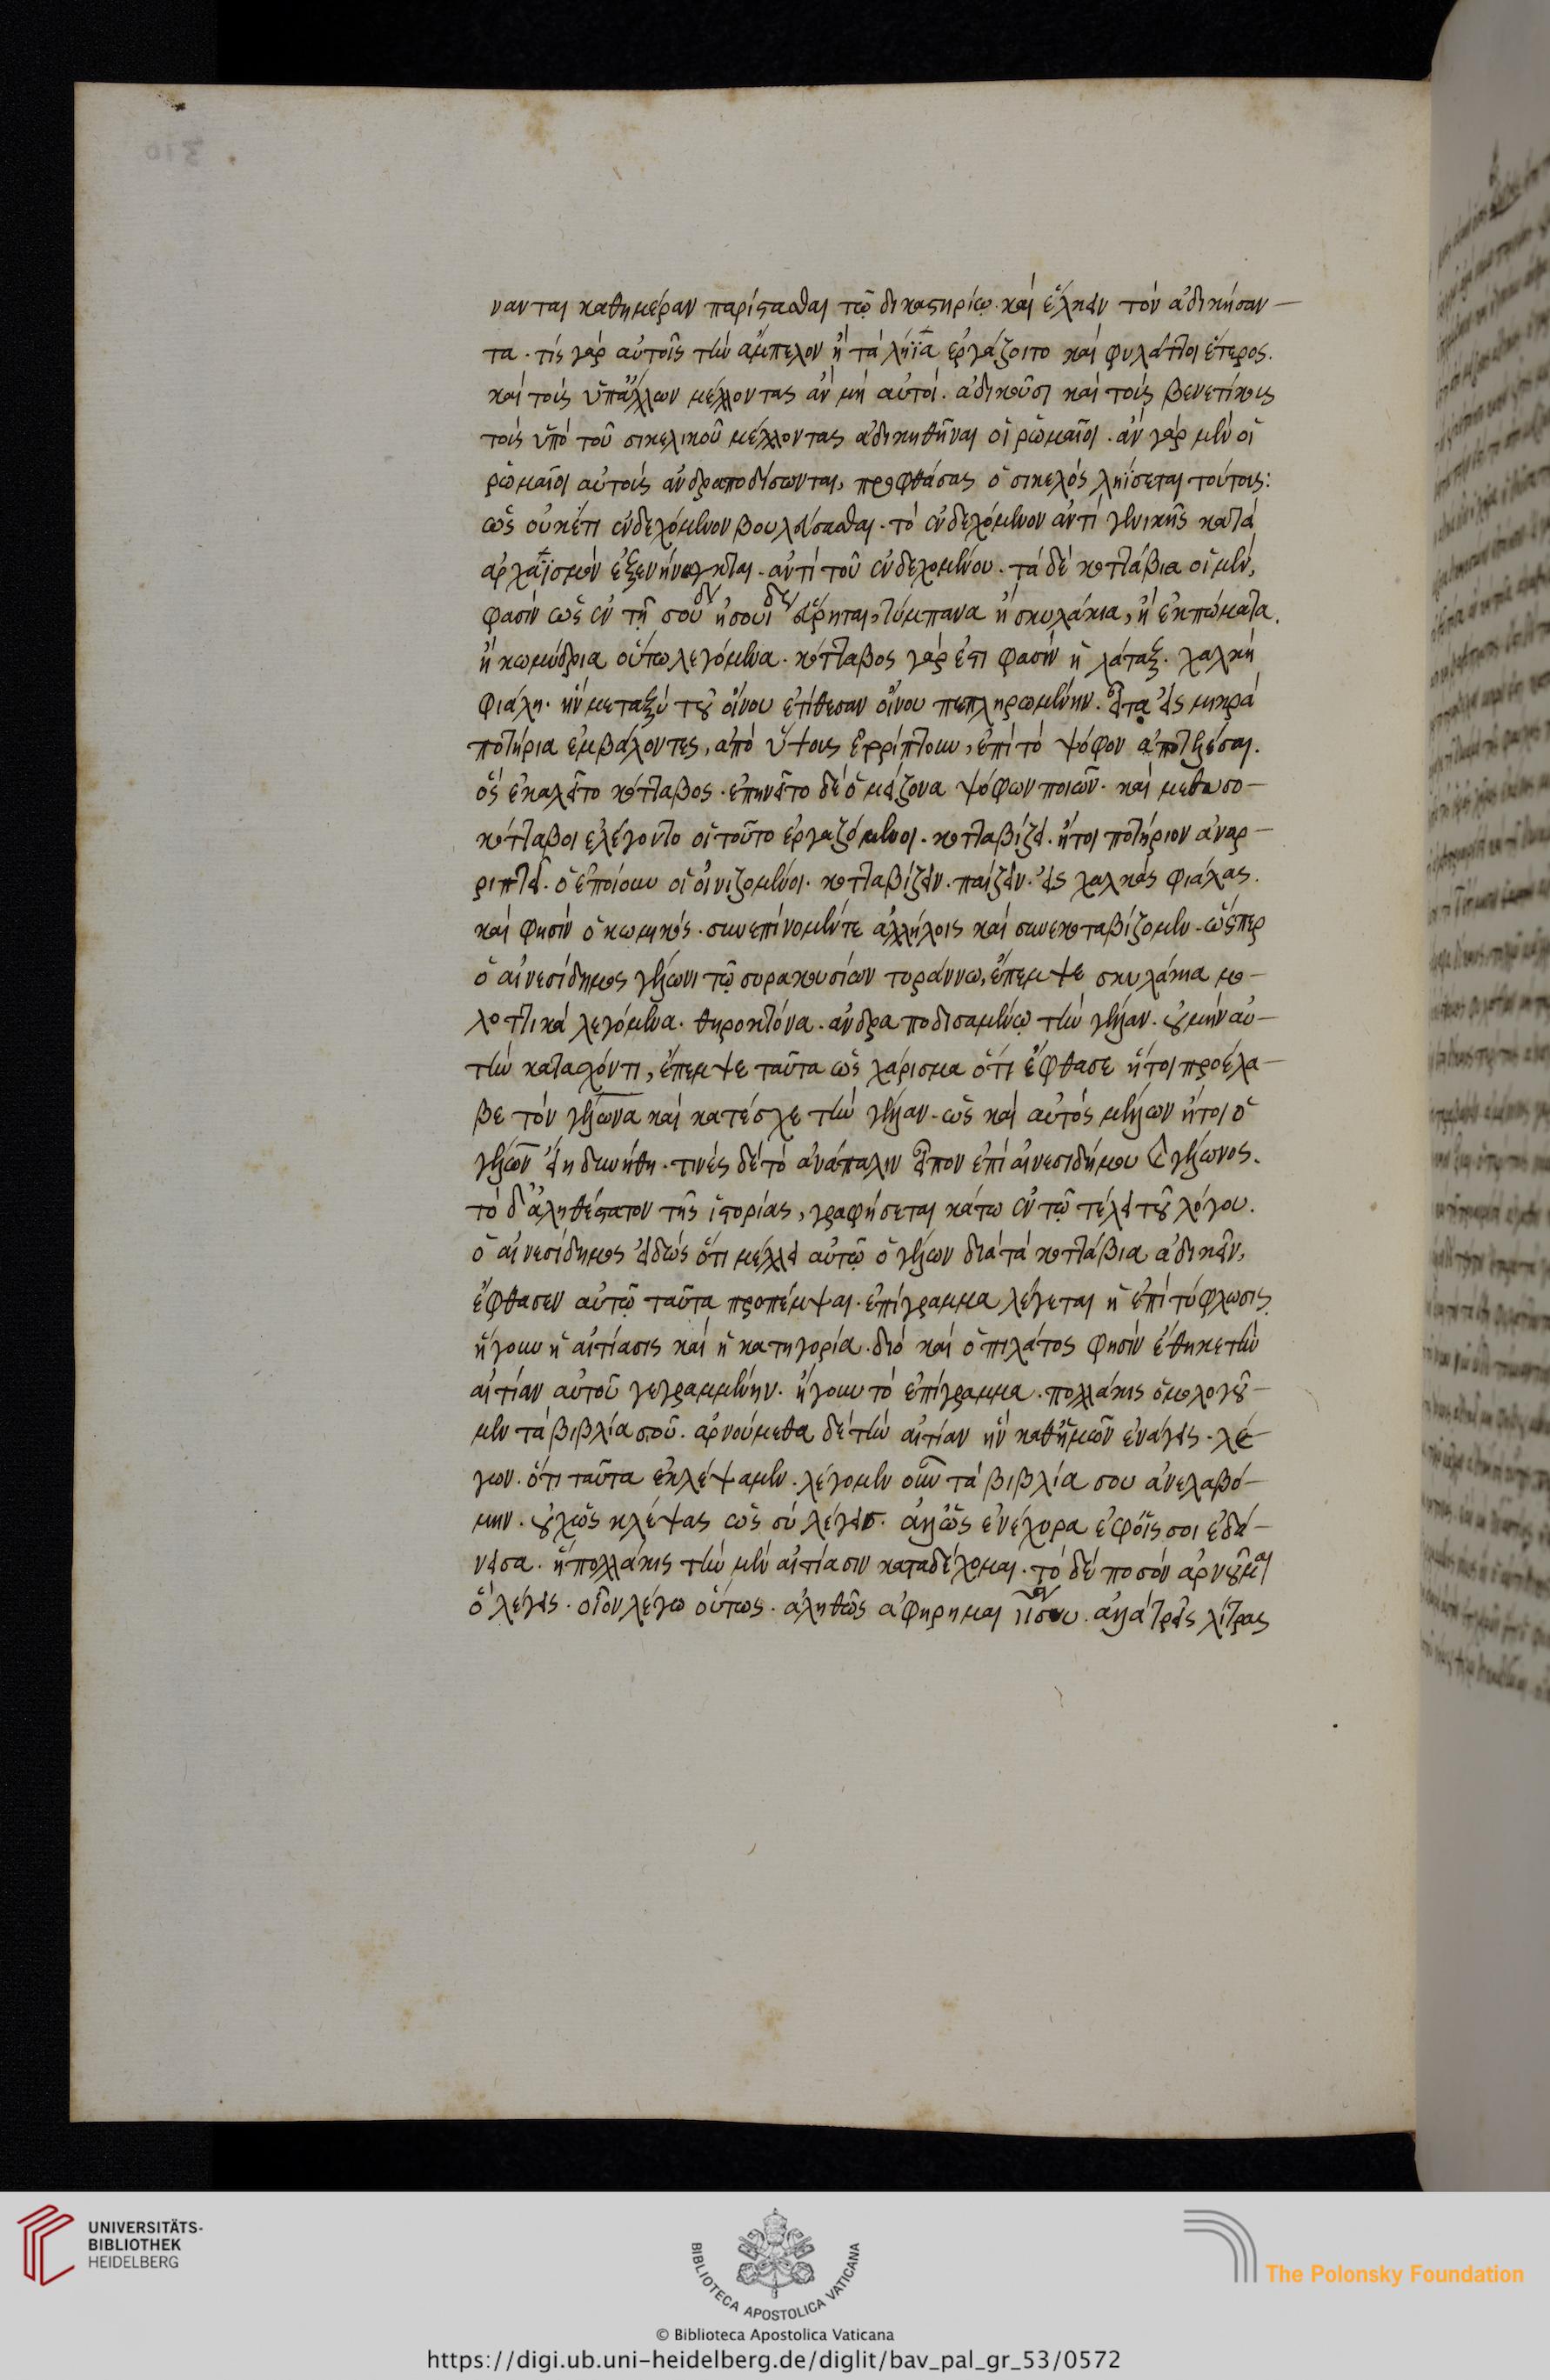 νανται καθημέραν παρίστασθαι τῷ δικαστηρίῳ. καὶ ἕλκειν τὸν ἀδικήσαν-
τα. τίς γὰρ αὐτοῖς τὴν ἄμπελον ἢ τὰ λήϊα ἐργάζοιτο καὶ φυλάττοι ἕτερος.
καὶ τοὺς ὑπάλλων μέλλοντας ἂν μὴ αὐτοί. ἀδικοῦσι καὶ τοὺς βενετίκους
τοὺς ὑπὸ τοῦ σικελικοῦ μέλλοντας ἀδικηθῆναι οἱ ῥωμαῖοι. ἂν γὰρ μὴν οἱ
ῥωμαῖοι αὐτοὺς ἀνδραποδίσωνται, προφθάσας ὁ σικελὸς ληΐσεται τούτους:
ὡς οὐκέτι ἐνδεχόμενον βουλεύσασθαι. τὸ ἐνδεχόμενον ἀντὶ γενικῆς κατὰ
ἀρχαϊσμὸν ἐξενήνεγκται. ἀντὶ τοῦ ἐνδεχομένου. τὰ δὲ κοττάβια οἱ μὲν,
φασὶν ὡς ἐν τῇ σουδ ἢ σουιδ εὕρηται, τύμπανα ἢ σκυλάκια, ἢ ἐκπώματα.
ἢ κωμύδρια οὕτω λεγόμενα. κότταβος γάρ ἐστι φασὶν ἡ λάταξ. χαλκὴ
φιάλη. ἣν μεταξὺ τοῦ οἴνου ἐτίθεσαν οἴνου πεπληρωμένην. εἶτα εἰς μικρὰ
ποτήρια ἐμβάλοντες, ἀπὸ ὕψους ἐρρίπτουν, ἐπὶ τὸ ψόφον ἀποτελέσαι.
ὃς ἐκαλεῖτο κότταβος. ἐπηνεῖτο δὲ ὁ μείζονα ψόφων ποιῶν. καὶ μεθυσο-
κότταβοι ἐλέγοντο οἱ τοῦτο ἐργαζόμενοι. κοτταβίζει. ἤτοι ποτήριον ἀναρ-
ριπτεῖ. ὃ ἐποίουν οἱ οἰνιζομένοι. κοτταβίζειν. παίζειν. εἰς χαλκὰς φιάλας.
καὶ φησὶν ὁ κωμικός. συνεπίνομέν τε ἀλλήλοις καὶ συνεκοταβίζομεν. ὥσπερ
ὁ αἰνεσίδημος γέλωνι τῷ συρακουσίων τυράννω, ἔπεμψε σκυλάκια μο-
λοττικὰ λεγόμενα. θηροκτόνα. ἀνδραποδισαμένῳ τὴν γέλαν. οὐ μὴν αὐ-
τὴν κατασχόντι, ἔπεμψε ταῦτα ὡς χάρισμα ὅτι ἔφθασε ἤτοι προέλα-
βε τὸν γέλωνα καὶ κατέσχε τὴν γέλαν. ὡς καὶ αὐτὸς μέλλων ἤτοι ὁ
γέλων ἐκδικηθῆ. τινὲς δὲ τὸ ἀνάπαλιν εἶπον ἐπὶ αἰνεσιδήμου καὶ γέλωνος.
τὸ δ' ἀληθέστατον τῆς ἱστορίας, γραφήσεται κάτω ἐν τῷ τέλει τοῦ λόγου.
ὁ αἰνεσίδημος εἰδὼς ὅτι μέλλει αὐτῷ ὁ γέλων διὰ τὰ κοττάβια ἀδικεῖν,
ἔφθασεν αὐτῷ ταῦτα προπέμψαι. ἐπίγραμμα λέγεται ἡ ἐπὶ τύφλωσις,
ἤγουν ἡ αἰτίασις καὶ ἡ κατηγορία. διὸ καὶ ὁ πιλάτος φησὶν ἔθηκε τὴν
αἰτίαν αὐτοῦ γεγραμμένην. ἤγουν τὸ ἐπίγραμμα. πολλάκις ὁμολογοῦ-
μεν τὰ βιβλία σοῦ. ἀρνούμεθα δὲ τὴν αἰτίαν ἣν καθ' ἡμῶν ἐνάγεις. λέ-
γων. ὅτι ταῦτα ἐκλέψαμεν. λέγομεν οὖν τὰ βιβλία σου ἀνελαβό-
μην. οὐχ ὡς κλέψας ὡς σὺ λέγεις. ἀλλ' ὡς ἐνέχυρα ἐφ' οἷς σοι ἐδά-
νεισα. ἢ πολλάκις τὴν μὲν αἰτίασιν καταδέχομαι. τὸ δὲ ποσὸν ἀρνοῦμαι
ὃ λέγεις. οἷον λέγω οὕτως. ἀληθῶς ἀφήρημαι σου. ἀλλὰ τρεῖς λίτρας
UNIVERSITÄTS-
BIBLIOTHEK
HEIDELBERG
BIBLIOTECA APOSTOLICA VATICANA
The Polonsky Foundation
© Biblioteca Apostolica Vaticana
https://digi.ub.uni-heidelberg.de/diglit/bav_pal_gr_53/0572